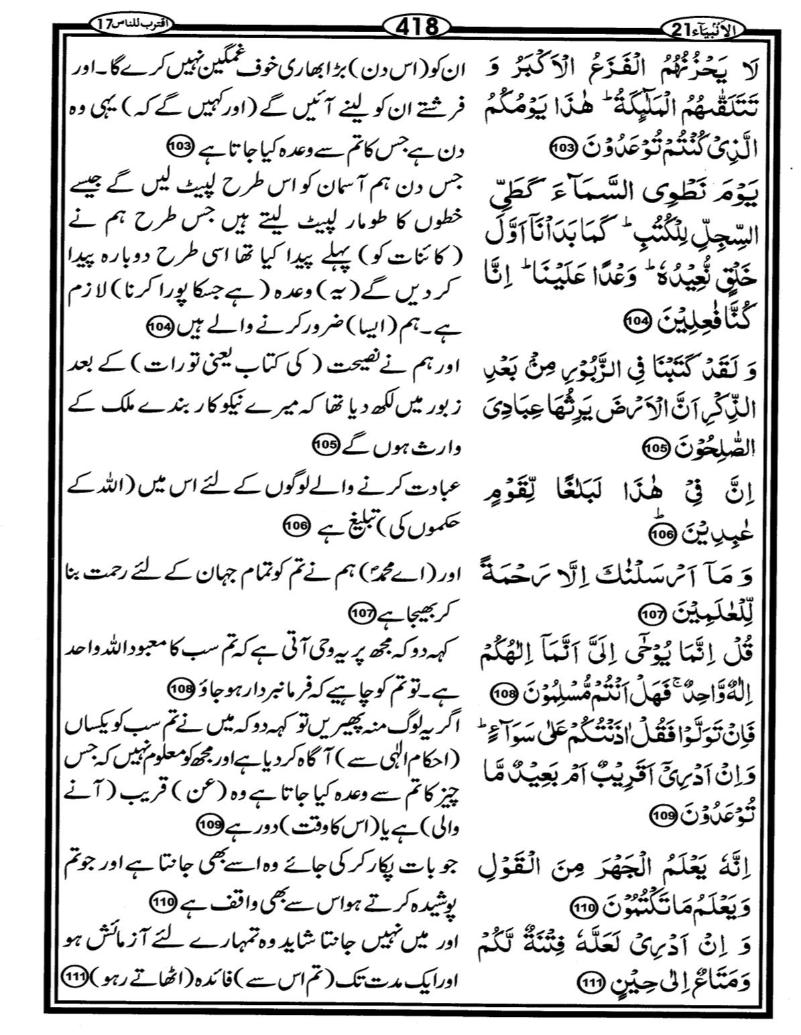 الانبيآء21
418
اقترب للناس17
لَا يَحْزُنُهُمُ الْفَزَعُ الْاَكْبَرُ وَ
تَتَلَقّٰىهُمُ الْمَلٰٓئِكَةُ ؕ هٰذَا يَوْمُكُمُ
الَّذِىْ كُنْتُمْ تُوْعَدُوْنَ 103
يَوْمَ نَطْوِى السَّمَآءَ كَطَىِّ
السِّجِلِّ لِلْكُتُبِ ؕ كَمَا بَدَاْنَاۤ اَوَّلَ
خَلْقٍ نُّعِيْدُهٗ ؕ وَعْدًا عَلَيْنَا ؕ اِنَّا
كُنَّا فٰعِلِيْنَ 104
وَ لَقَدْ كَتَبْنَا فِى الزَّبُوْرِ مِنْۢ بَعْدِ
الذِّكْرِ اَنَّ الْاَرْضَ يَرِثُهَا عِبَادِىَ
الصّٰلِحُوْنَ 105
اِنَّ فِىْ هٰذَا لَبَلٰغًا لِّقَوْمٍ
عٰبِدِيْنَ ؕ 106
وَ مَاۤ اَرْسَلْنٰكَ اِلَّا رَحْمَةً
لِّلْعٰلَمِيْنَ 107
قُلْ اِنَّمَا يُوْحٰٓى اِلَىَّ اَنَّمَاۤ اِلٰهُكُمْ
اِلٰهٌ وَّاحِدٌ ۚ فَهَلْ اَنْتُمْ مُّسْلِمُوْنَ 108
فَاِنْ تَوَلَّوْا فَقُلْ اٰذَنْتُكُمْ عَلٰى سَوَآءٍ ؕ
وَاِنْ اَدْرِىْۤ اَقَرِيْبٌ اَمْ بَعِيْدٌ مَّا
تُوْعَدُوْنَ 109
اِنَّهٗ يَعْلَمُ الْجَهْرَ مِنَ الْقَوْلِ
وَيَعْلَمُ مَا تَكْتُمُوْنَ 110
وَ اِنْ اَدْرِىْ لَعَلَّهٗ فِتْنَةٌ لَّكُمْ
وَمَتَاعٌ اِلٰى حِيْنٍ 111
ان کو (اس دن) بڑا بھاری خوف غمگین نہیں کرے گا۔ اور
فرشتے ان کو لینے آئیں گے (اور کہیں گے کہ) یہی وہ
دن ہے جس کا تم سے وعدہ کیا جاتا ہے 103
جس دن ہم آسمان کو اس طرح لپیٹ لیں گے جیسے
خطوں کا طومار لپیٹ لیتے ہیں جس طرح ہم نے
(کائنات کو) پہلے پیدا کیا تھا اسی طرح دوبارہ پیدا
کر دیں گے (یہ) وعدہ (ہے جسکا پورا کرنا) لازم
ہے۔ ہم (ایسا) ضرور کرنے والے ہیں 104
اور ہم نے نصیحت (کی کتاب یعنی تورات) کے بعد
زبور میں لکھ دیا تھا کہ میرے نیکوکار بندے ملک کے
وارث ہوں گے 105
عبادت کرنے والے لوگوں کے لئے اس میں (اللہ کے
حکموں کی) تبلیغ ہے 106
اور (اے محمدؐ) ہم نے تم کو تمام جہان کے لئے رحمت بنا
کر بھیجا ہے 107
کہہ دو کہ مجھ پر یہ وحی آتی ہے کہ تم سب کا معبود اللہ واحد
ہے۔ تو تم کو چاہیے کہ فرمانبردار ہو جاؤ 108
اگر یہ لوگ منہ پھیریں تو کہہ دو کہ میں نے تم سب کو یکساں
(احکام الٰہی سے) آگاہ کر دیا ہے اور مجھ کو معلوم نہیں کہ جس
چیز کا تم سے وعدہ کیا جاتا ہے وہ (عن) قریب (آنے
والی) ہے یا (اس کا وقت) دور ہے 109
جو بات پکار کر کی جائے وہ اسے بھی جانتا ہے اور جو تم
پوشیدہ کرتے ہو اس سے بھی واقف ہے 110
اور میں نہیں جانتا شاید وہ تمہارے لئے آزمائش ہو
اور ایک مدت تک (تم اس سے) فائدہ (اٹھاتے رہو) 111